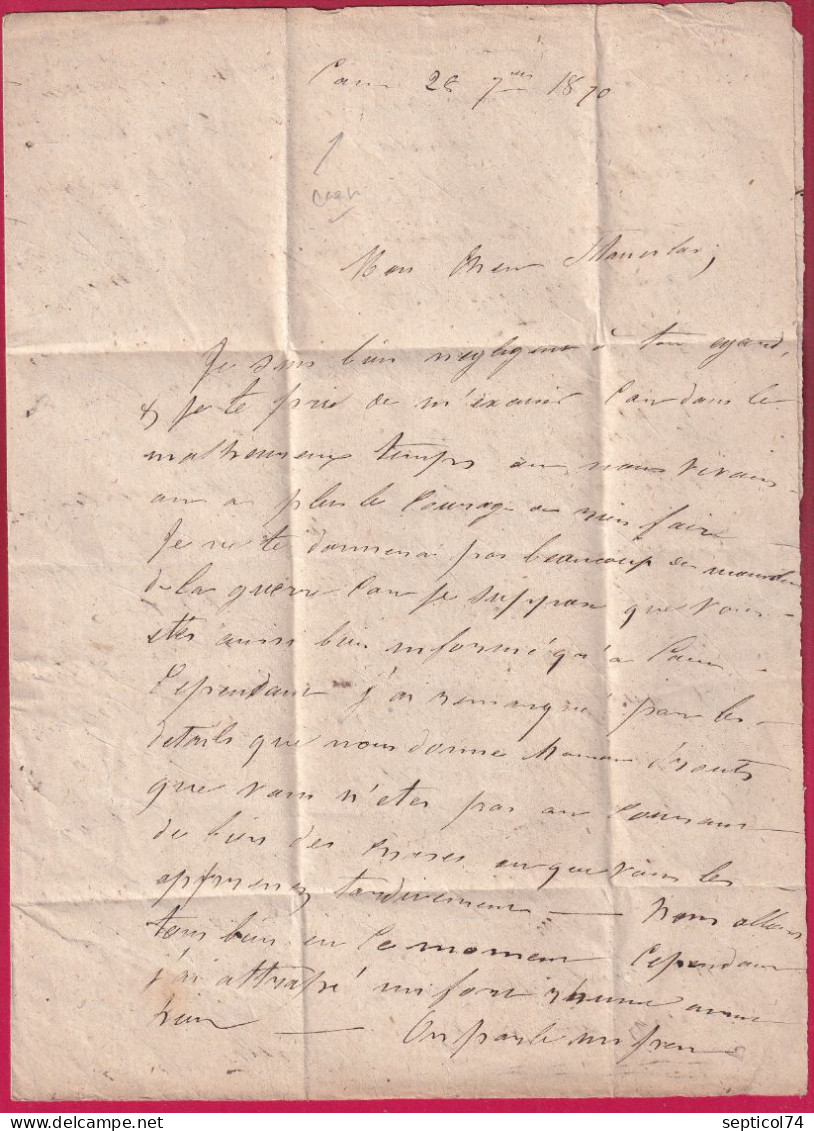 Caen 28 7bre 1870
Caen
Mon Cher Stanislas,
Je suis bien negligent à ton egard,
& je te prie de m'excuser Car dans le
malheureux temps où nous vivons
on a plus le Courage de rien faire
Je ne te donnerai pas beaucoup de
de la guerre Car je suppose que vous
etes aussi bien informé qu'à Caen
Cependant j'ai remarqué par les
details que nous donne Maman
que vous n'etes pas au Courant
de bien des Choses ou que vous les
apprenez tardivement — Nous allons
tous bien en Ce moment Cependant
j'ai attrapé un fort rhume avant
hier — On parle un peu
delcampe.net
septicol74